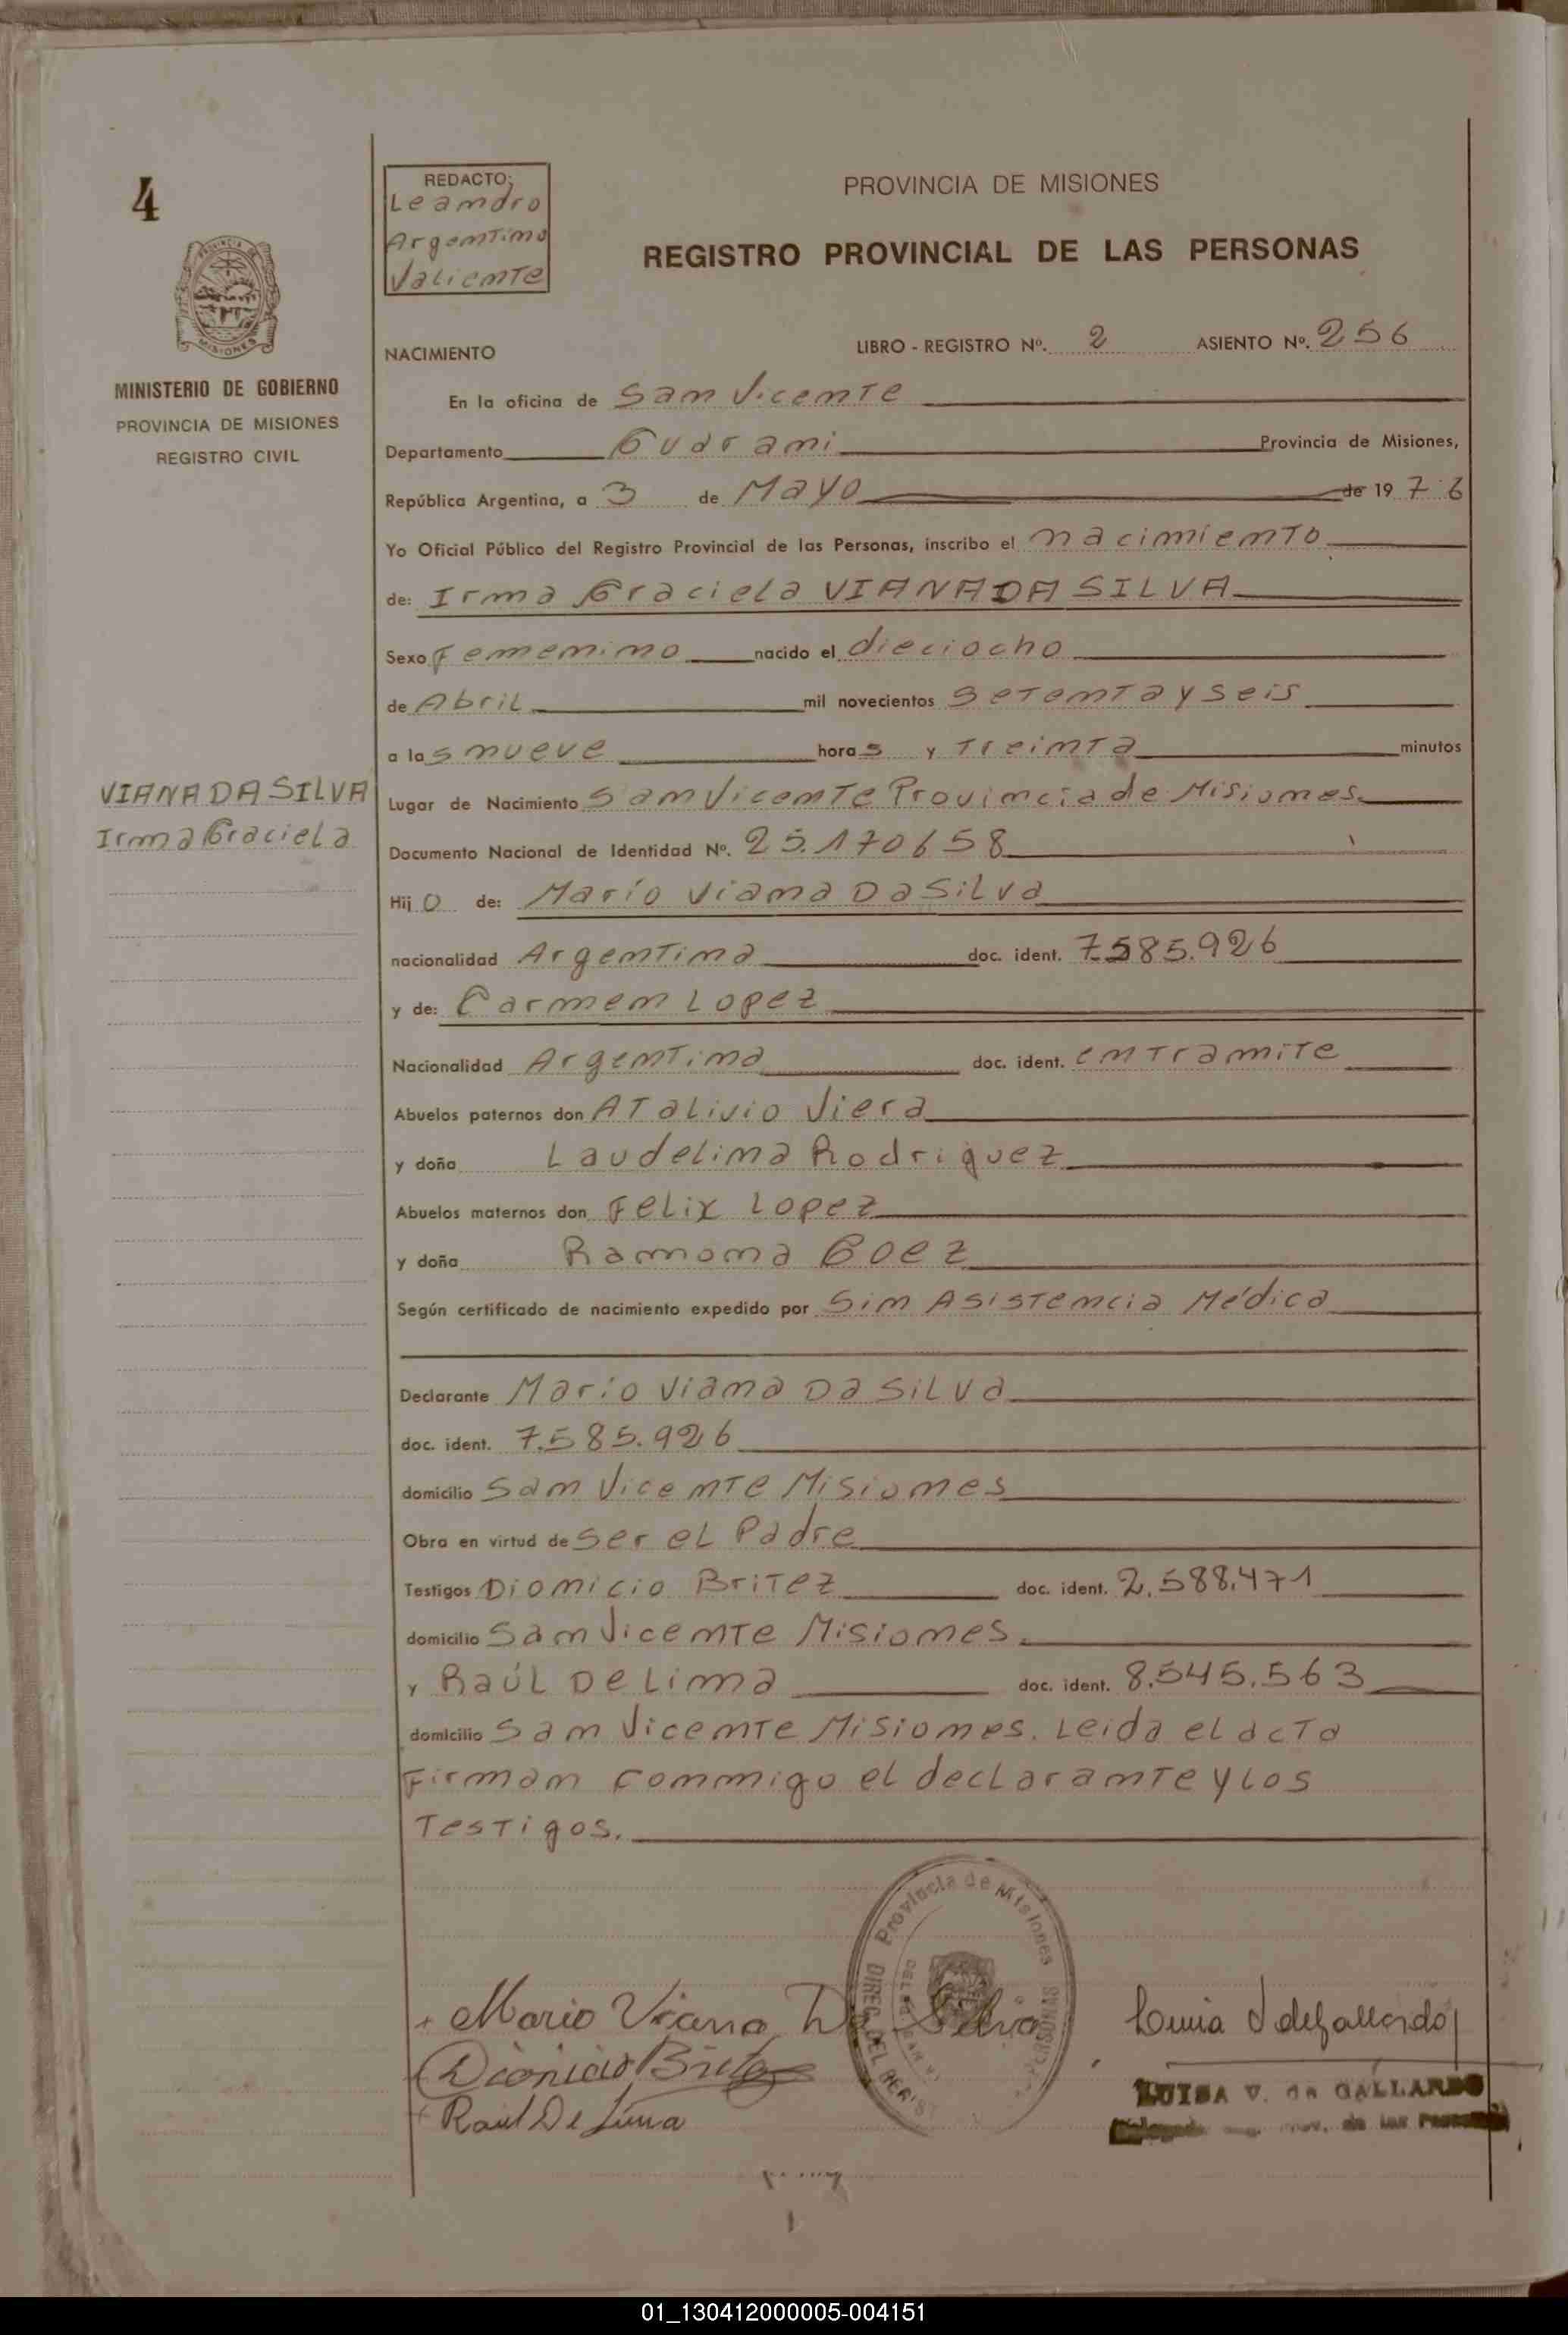 4
REDACTO:
Leandro
Argentino
Valiente
PROVINCIA DE MISIONES
REGISTRO PROVINCIAL DE LAS PERSONAS
MISIONES
MINISTERIO DE GOBIERNO
PROVINCIA DE MISIONES
REGISTRO CIVIL
NACIMIENTO
LIBRO - REGISTRO Nº. 2 ASIENTO Nº. 256
En la oficina de San Vicente
Departamento Guarani Provincia de Misiones,
República Argentina, a 3 de Mayo de 19 76
Yo Oficial Público del Registro Provincial de las Personas, inscribo el nacimiento
de: Irma Graciela VIANA DA SILVA
Sexo Femenino nacido el dieciocho
de Abril mil novecientos setenta y seis
a las nueve horas y treinta minutos
VIANA DA SILVA
Irma Graciela
Lugar de Nacimiento San Vicente Provincia de Misiones.
Documento Nacional de Identidad Nº. 25.170658
Hijo de: Mario Viana Da Silva
nacionalidad Argentina doc. ident. 7.585.926
y de: Carmen Lopez
Nacionalidad Argentina doc. ident. en tramite
Abuelos paternos don Atalivio Viera
y doña Laudelina Rodriguez
Abuelos maternos don Felix Lopez
y doña Ramona Goez
Según certificado de nacimiento expedido por Sin Asistencia Médica
Declarante Mario Viana Da Silva
doc. ident. 7.585.926
domicilio San Vicente Misiones
Obra en virtud de ser el Padre
Testigos Dionicio Britez doc. ident. 2.588.471
domicilio San Vicente Misiones.
y Raúl De Lima doc. ident. 8.545.563
domicilio San Vicente Misiones. Leida el acta
Firman conmigo el declarante y los
Testigos.
Provincia de Misiones
DIREC. DEL
PERSONAS
Mario Viana Da Silva
Dionicio Britez
Raul De Lima
LUISA V. de GALLARDO
01_130412000005-004151